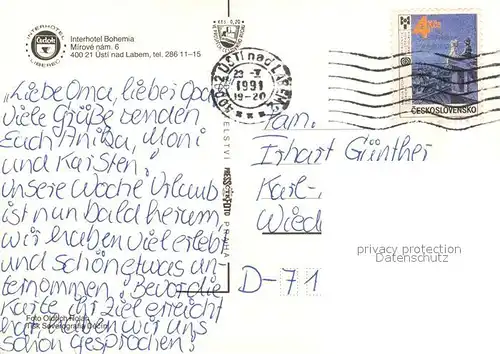 INTERHOTEL
Čedok
LIBEREC
Interhotel Bohemia
Mírové nám. 6
400 21 Ústí nad Labem, tel. 286 11-15
Kčs 0,20
ÚSTÍ nad LABEM
23.-X
1991
19-20
4 Kčs
ČESKOSLOVENSKO
„Liebe Oma, lieber Opa
viele Grüße senden
Euch Anika, Moni
und Karsten!
Unsere Woche Urlaub
ist nun bald herum,
wir haben viel erlebt
und schön etwas un-
ternommen. Bevor die
Karte Ihr Ziel erreicht
hat, haben wir uns
schon gesprochen!
Foto Oldřich Rejžek
Tisk Severografia Děčín
PRESSFOTO
PRAHA
Fam.
Irhart Günther
Karl-
Wied
D-71
privacy protection
Datenschutz